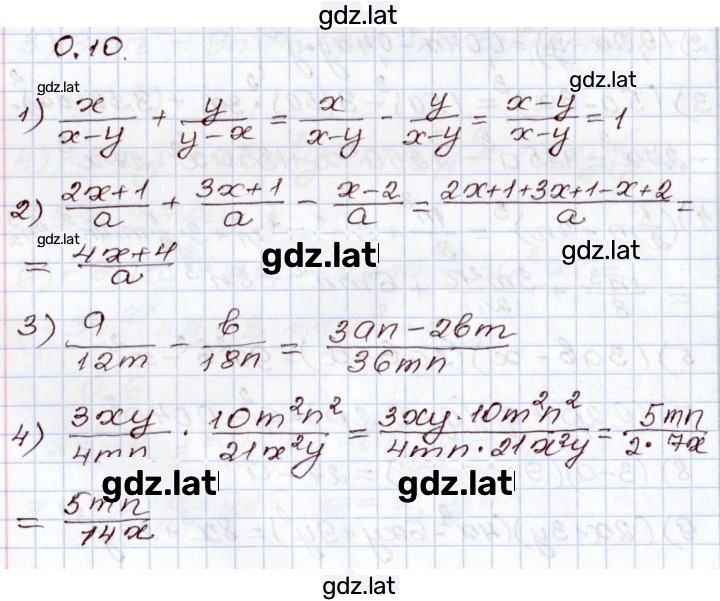 gdz.lat
0.10.
gdz.lat
gdz.lat
1) x/(x-y) + y/(y-x) = x/(x-y) - y/(x-y) = (x-y)/(x-y) = 1
2) (2x+1)/a + (3x+1)/a - (x-2)/a = (2x+1+3x+1-x+2)/a =
gdz.lat
gdz.lat
gdz.lat
= (4x+4)/a
3) a/12m - b/18n = (3an-2bm)/36mn
4) 3xy/4mn · 10m²n²/21x²y = (3xy·10m²n²)/(4mn·21x²y) = 5mn/(2·7x)
gdz.lat
gdz.lat
= 5mn/14x
gdz.lat